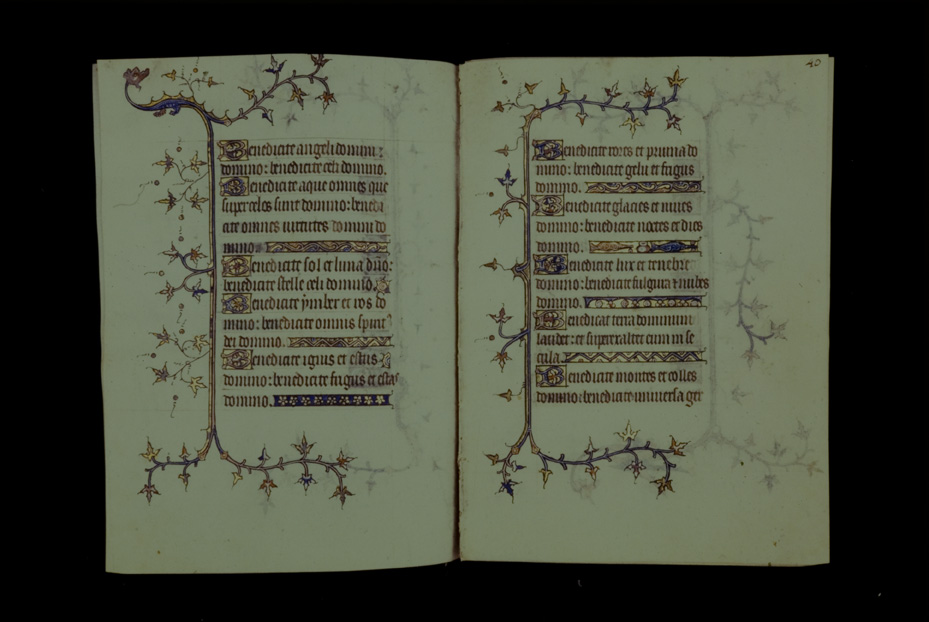 Benedicite angeli domini
domino: benedicite celi domino.
Benedicite aque omnes que
super celos sunt domino: benedi
cite omnes uirtutes domini do
mino.
Benedicite sol et luna dño:
benedicite stelle celi domino.
Benedicite ymber et ros do
mino: benedicite omnis spirit
dei domino.
Benedicite ignis et estus
domino: benedicite frigus et estas
domino.
40
Benedicite rores et pruina do
mino: benedicite gelu et frigus
domino.
Benedicite glacies et niues
domino: benedicite noctes et dies
domino.
Benedicite lux et tenebre
domino: benedicite fulgura et nubes
domino.
Benedicat terra dominum
laudet: et superexaltet eum in se
cula.
Benedicite montes et colles
domino: benedicite uniuersa ger